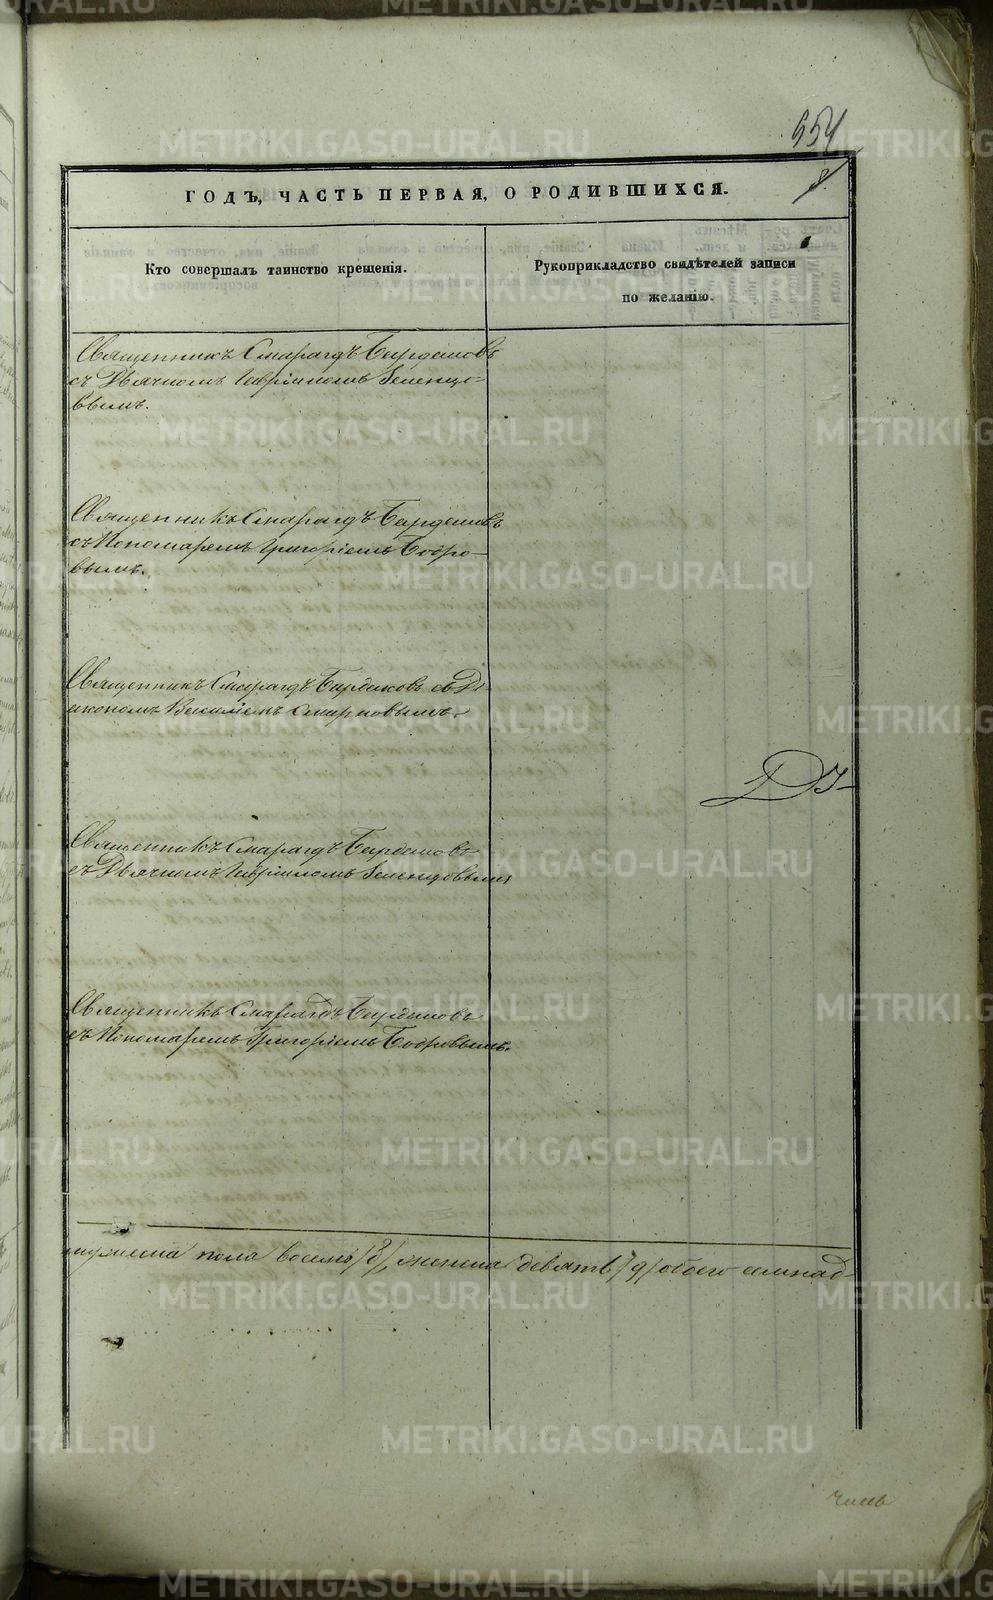 554
8.
ГОДЪ, ЧАСТЬ ПЕРВАЯ, О РОДИВШИХСЯ.
Кто совершалъ таинство крещенія.
Рукоприкладство свидѣтелей записи
по желанію.
Священникъ Смарагдъ Бирдюковъ
съ Дьячкомъ Гавріиломъ Зеленцо-
вымъ.
Священникъ Смарагдъ Бирдюковъ
съ Пономаремъ Григоріемъ Бобро-
вымъ.
Священникъ Смарагдъ Бирдюковъ съ Ді-
акономъ Василіемъ Смирновымъ.
Священникъ Смарагдъ Бирдюковъ
съ Дьячкомъ Гавріиломъ Зеленцовымъ
Священникъ Смарагдъ Бирдюковъ
съ Пономаремъ Григоріемъ Бобровымъ.
мужеска пола восемь /8/, женска девять /9/ обоего семнад-
METRIKI.GASO-URAL.RU